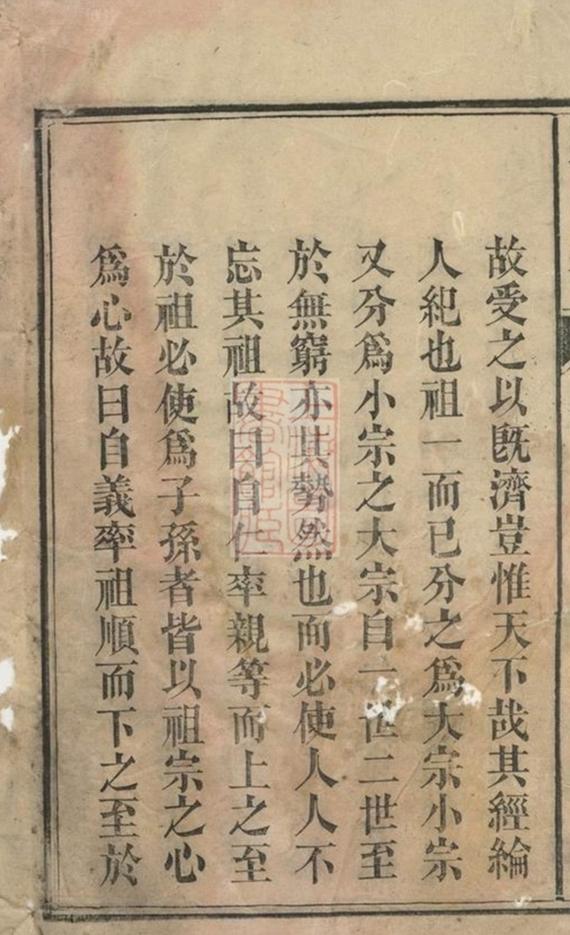 故受之以旣濟豈惟天下哉其經綸
人紀也祖一而已分之爲大宗小宗
又分爲小宗之大宗自一世二世至
於無窮亦其勢然也而必使人人不
忘其祖故曰自仁率親等而上之至
於祖必使爲子孫者皆以祖宗之心
爲心故曰自義率祖順而下之至於